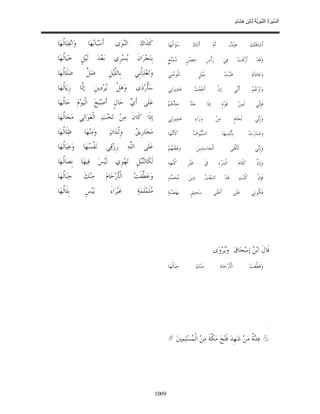 السِّيرَةُ النَّبَوِيَّةُ لِابْنِ هِشَامٍ
أَشَاقَتْكَ هِنْدٌ أَمْ أَتَاكَ سُؤَالُهَا كَذَاكَ النَّوَى أَسْبَابُهَا وَانْفِتَالُهَا
وَقَدْ أَرَّقَتْ فِي رَأْسِ حِصْنٍ مُمَنَّعٍ بِنَجْرَانَ يَسْرِي بَعْدَ لَيْلٍ خَيَالُهَا
وَعَاذِلَةٍ هَبَّتْ بِلَيْلٍ تَلُومُنِي وَتَعْذِلُنِي بِاللَّيْلِ ضَلَّ ضَلَالُهَا
وَتَزْعُمُ أَنِّي إِنْ أَطَعْتُ عَشِيرَتِي سَأُرْدَى وَهَلْ يُرْدِينِ إِلَّا زِيَالُهَا
فَإِنِّي لَمِنْ قَوْمٍ إِذَا جَدَّ جِدُّهُمْ عَلَى أَيِّ حَالٍ أَصْبَحَ الْيَوْمَ حَالُهَا
وَإِنِّي لَحَامٍ مِنْ وَرَاءِ عَشِيرَتِي إِذَا كَانَ مِنْ تَحْتِ الْعَوَالِي مَجَالُهَا
وَصَارَتْ بِأَيْدِيهَا السُّيُوفُ كَأَنَّهَا مَخَارِيقُ وِلْدَانٍ وَمِنْهَا ظِلَالُهَا
وَإِنِّي لَأَقْلَى الْحَاسِدِينَ وَفِعْلَهُمْ عَلَى اللَّهِ رِزْقِي نَفْسُهَا وَعِيَالُهَا
وَإِنَّ كَلَامَ الْمَرْءِ فِي غَيْرِ كُنْهِهِ لَكَالنَّبْلِ تَهْوِي لَيْسَ فِيهَا نِصَالُهَا
فَإِنْ كُنْتِ قَدْ تَابَعْتِ دِينَ مُحَمَّدٍ وَعَطَّفَتْ الْأَرْحَامَ مِنْكَ حِبَالُهَا
فَكُونِي عَلَى أَعْلَى سَحِيقٍ بِهَضْبَةٍ مُلَمْلَمَةٍ غَبْرَاءَ يَبْسٍ بِلَالُهَا
قَالَ ابْنُ إِسْحَاقَ: وَيُرْوَى
وَقَطَّعَتْ الْأَرْحَامَ مِنْكَ حِبَالُهَا
.
# عِدَّةُ مَنْ شَهِدَ فَتْحَ مَكَّةَ مِنْ الْمُسْلِمِينَ #
1009